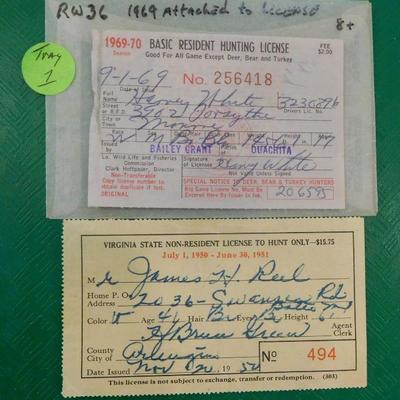 RW36 1969 Attached to LICENSE
8+
Tray
1
1969-70 BASIC RESIDENT HUNTING LICENSE FEE
Season Good For All Game Except Deer, Bear and Turkey $2.00
9-1-69 No. 256418
Date of
Full Name Harvey White 3230896
Street or R.F.D. 3902 Forsythe Drivers Lic. No.
City or Town Monroe
W M Br Bl
BAILEY GRANT OUACHITA
La. Wild Life and Fisheries Commission Signature of Licensee Harvey White
Clark Hoffpauer, Director Not Valid Unless Signed
Non-Transferable SPECIAL NOTICE TO DEER, BEAR & TURKEY HUNTERS
Copy license number to obtain duplicate if lost. Big Game License No. Must Be Entered Here
206595
VIRGINIA STATE NON-RESIDENT LICENSE TO HUNT ONLY—$15.75
July 1, 1950 - June 30, 1951
Mr James H Reel
Home P. O. Address 2036 - Swanson Rd
Color W Age 41 Hair Bro Height 6'
H Bruce Green Agent Clerk
County City of Arlington No 494
Date Issued Nov 20 1950
This license is not subject to exchange, transfer or redemption. (303)